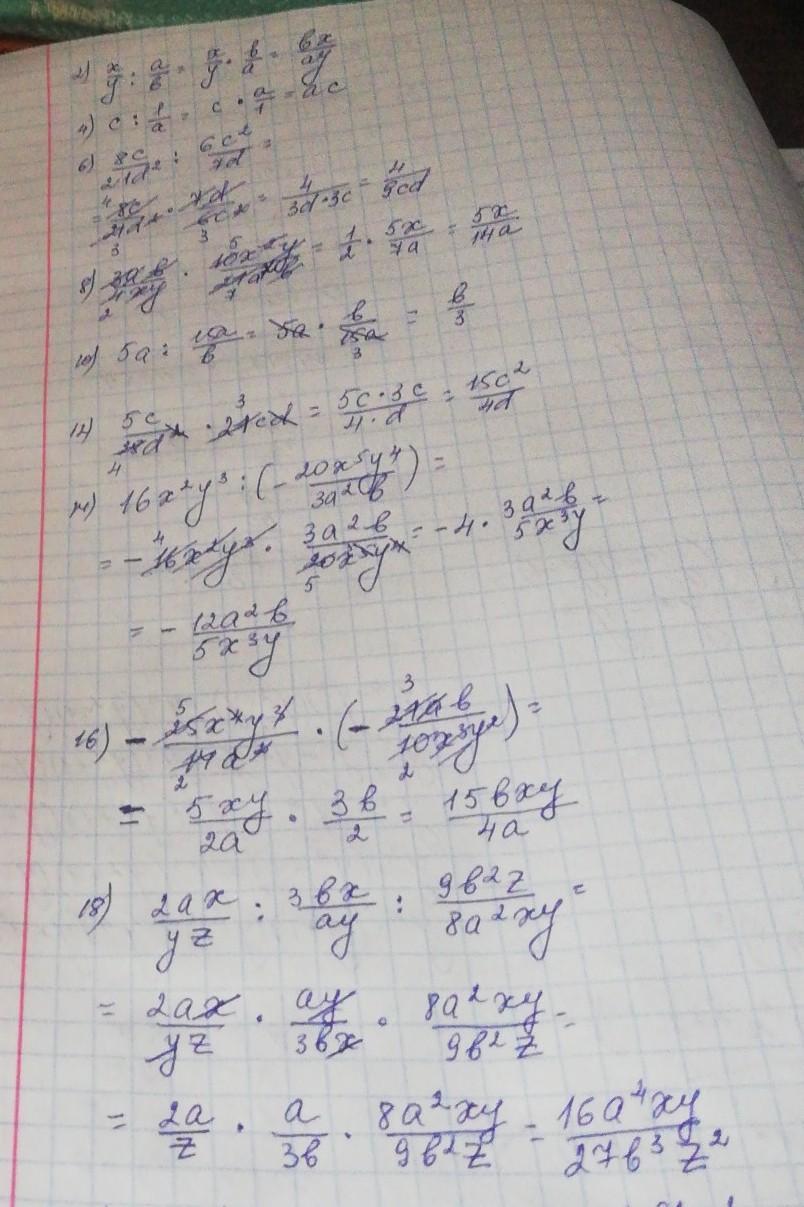 2) x/y : a/в = x/y · в/a = вx/ay
4) c : 1/a = c · a/1 = ac
6) 8c/21d² : 6c²/7d =
= 8c/21d² · 7d/6c² = 4/3d·3c = 4/9cd
8) 3aв/4xy · 10x²y/21a²в = 1/2 · 5x/7a = 5x/14a
10) 5a : 15a/в = 5a · в/15a = в/3
12) 5c/28d² · 21cd = 5c·3c/4·d = 15c²/4d
14) 16x²y³ : (- 20x⁵y⁴/3a²в) =
= - 16x²y³ · 3a²в/20x⁵y⁴ = -4 · 3a²в/5x³y =
= - 12a²в/5x³y
16) - 25x⁴y³/14a² · (- 21aв/10x³y²) =
= 5xy/2a · 3в/2 = 15вxy/4a
18) 2ax/yz : 3вx/ay : 9в²z/8a²xy =
= 2ax/yz · ay/3вx · 8a²xy/9в²z =
= 2a/z · a/3в · 8a²xy/9в²z = 16a⁴xy/27в³z²